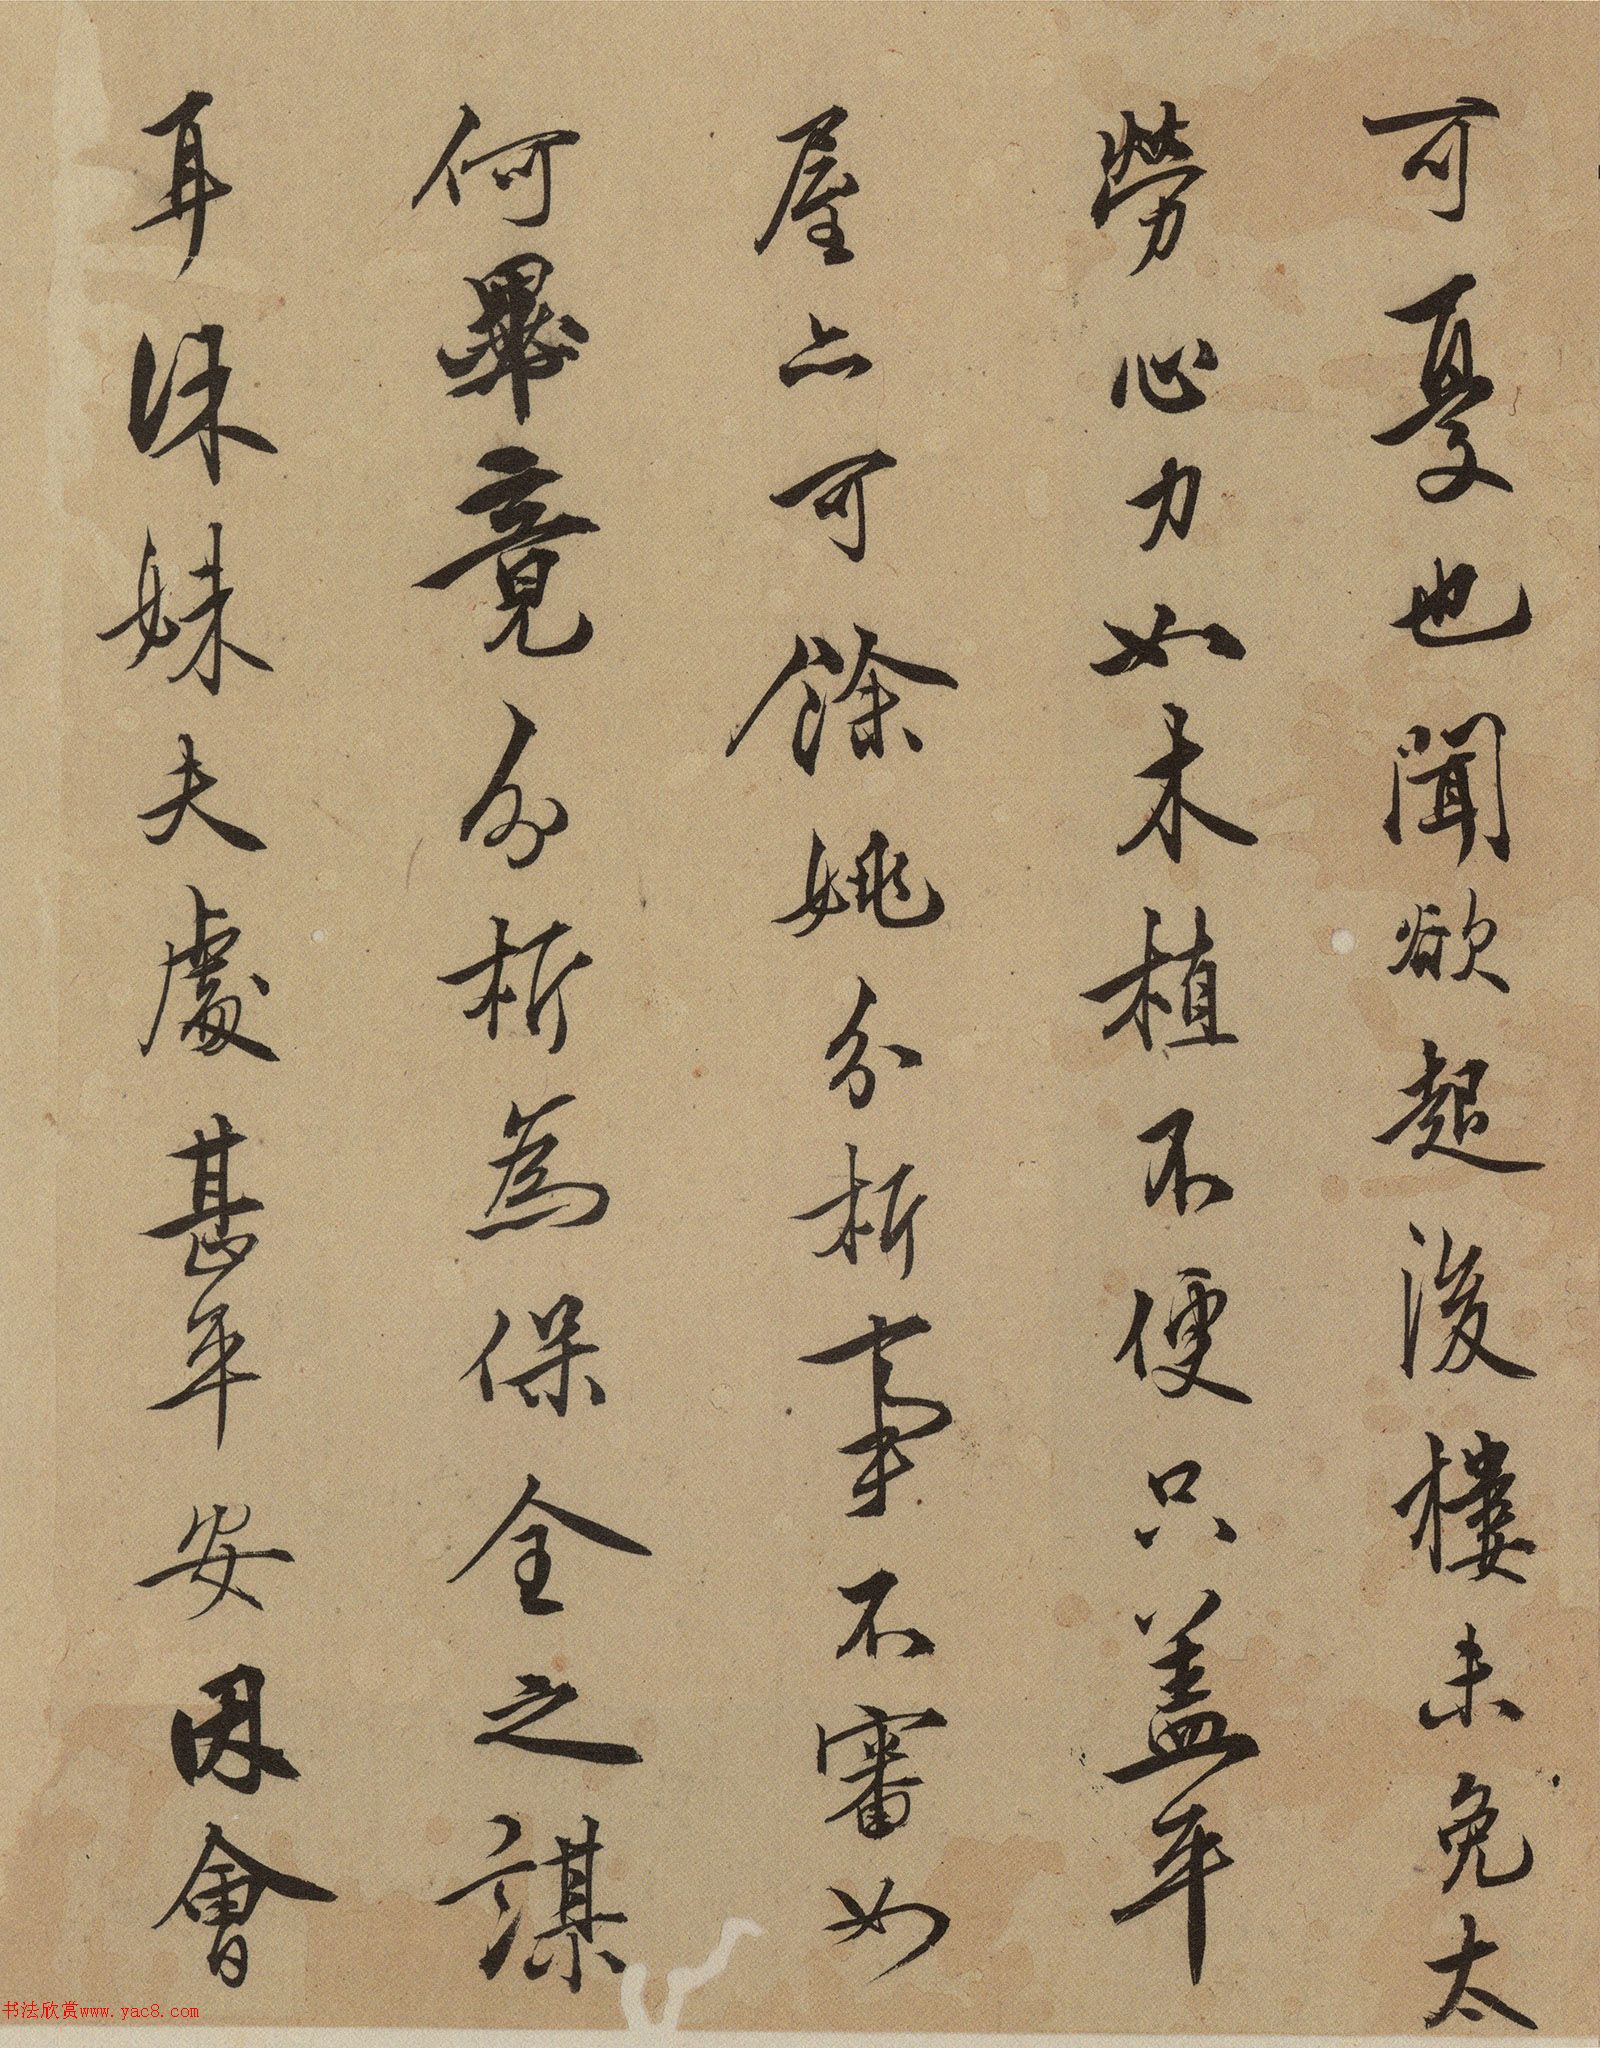 可憂也聞欲起後樓未免太
勞心力如木植不便只盖平
屋亦可餘姚分析事不審如
何畢竟分析為保全之謀
耳妹夫處甚平安因會
书法欣赏www.yac8.com